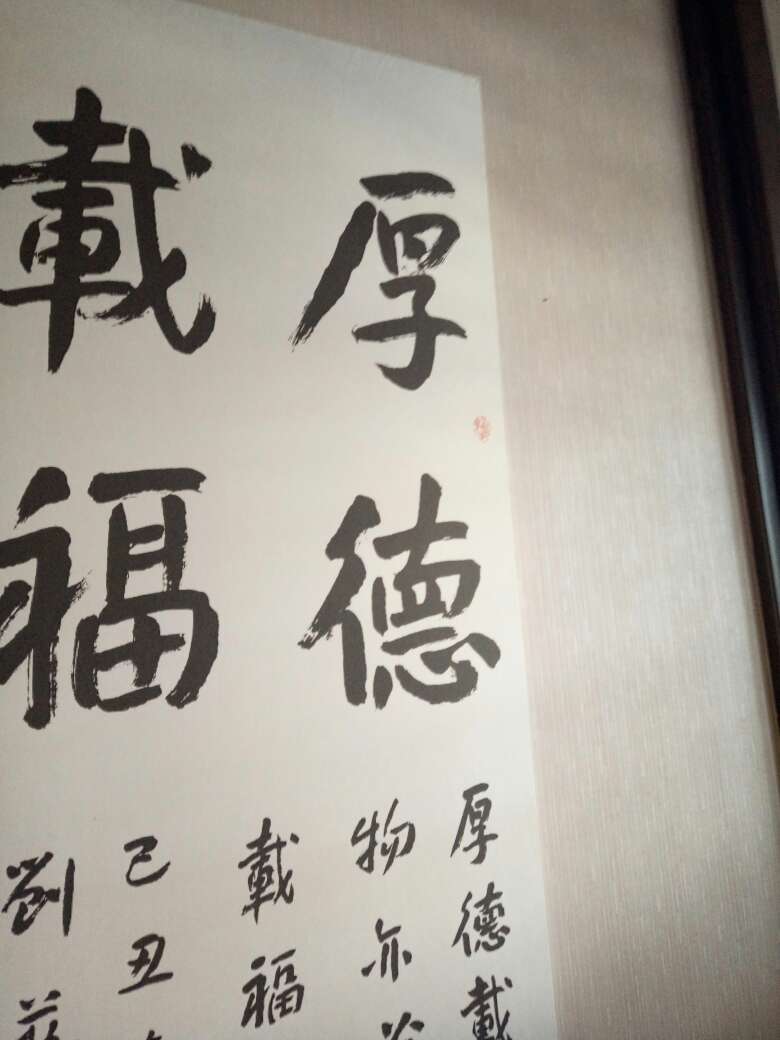 厚德
載福
厚德載
物亦
載福
己丑
劉